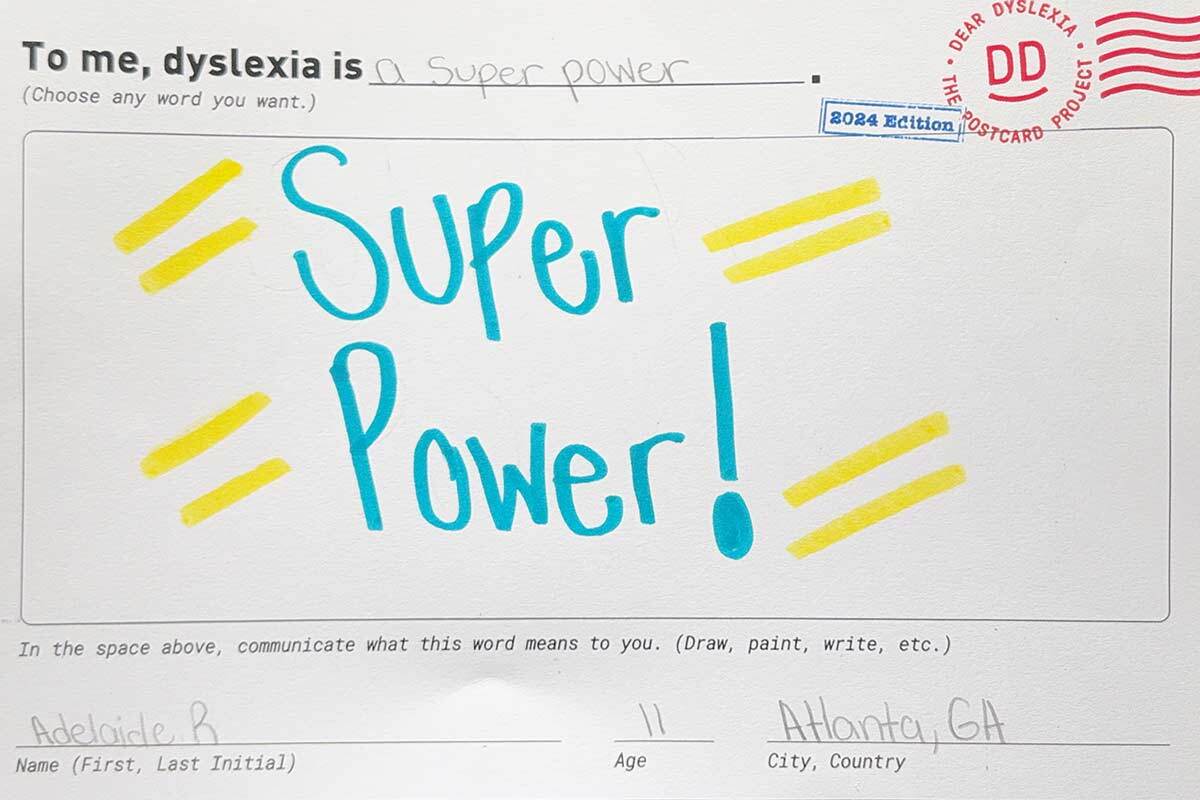 To me, dyslexia is a super power.
(Choose any word you want.)
• DEAR DYSLEXIA • THE POSTCARD PROJECT
DD
2024 Edition
Super
Power!
In the space above, communicate what this word means to you. (Draw, paint, write, etc.)
Adelaide R 11 Atlanta, GA
Name (First, Last Initial) Age City, Country